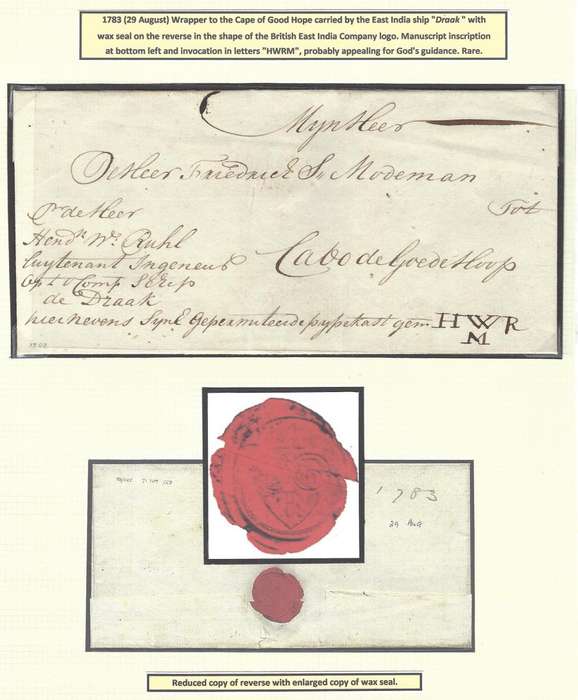 1783 (29 August) Wrapper to the Cape of Good Hope carried by the East India ship "Draak " with
wax seal on the reverse in the shape of the British East India Company logo. Manuscript inscription
at bottom left and invocation in letters "HWRM", probably appealing for God's guidance. Rare.
Mijn Heer
De Heer Friedrich Modeman
Tot
Pr de Heer
Hendk Wm Ruhl
Luytenant Ingeneur
Cabo de Goede Hoop
Comp Schip
de Draak
hier nevens gepermiteerde pypekast gem. H W R
M
1783
29 AUG
Reduced copy of reverse with enlarged copy of wax seal.